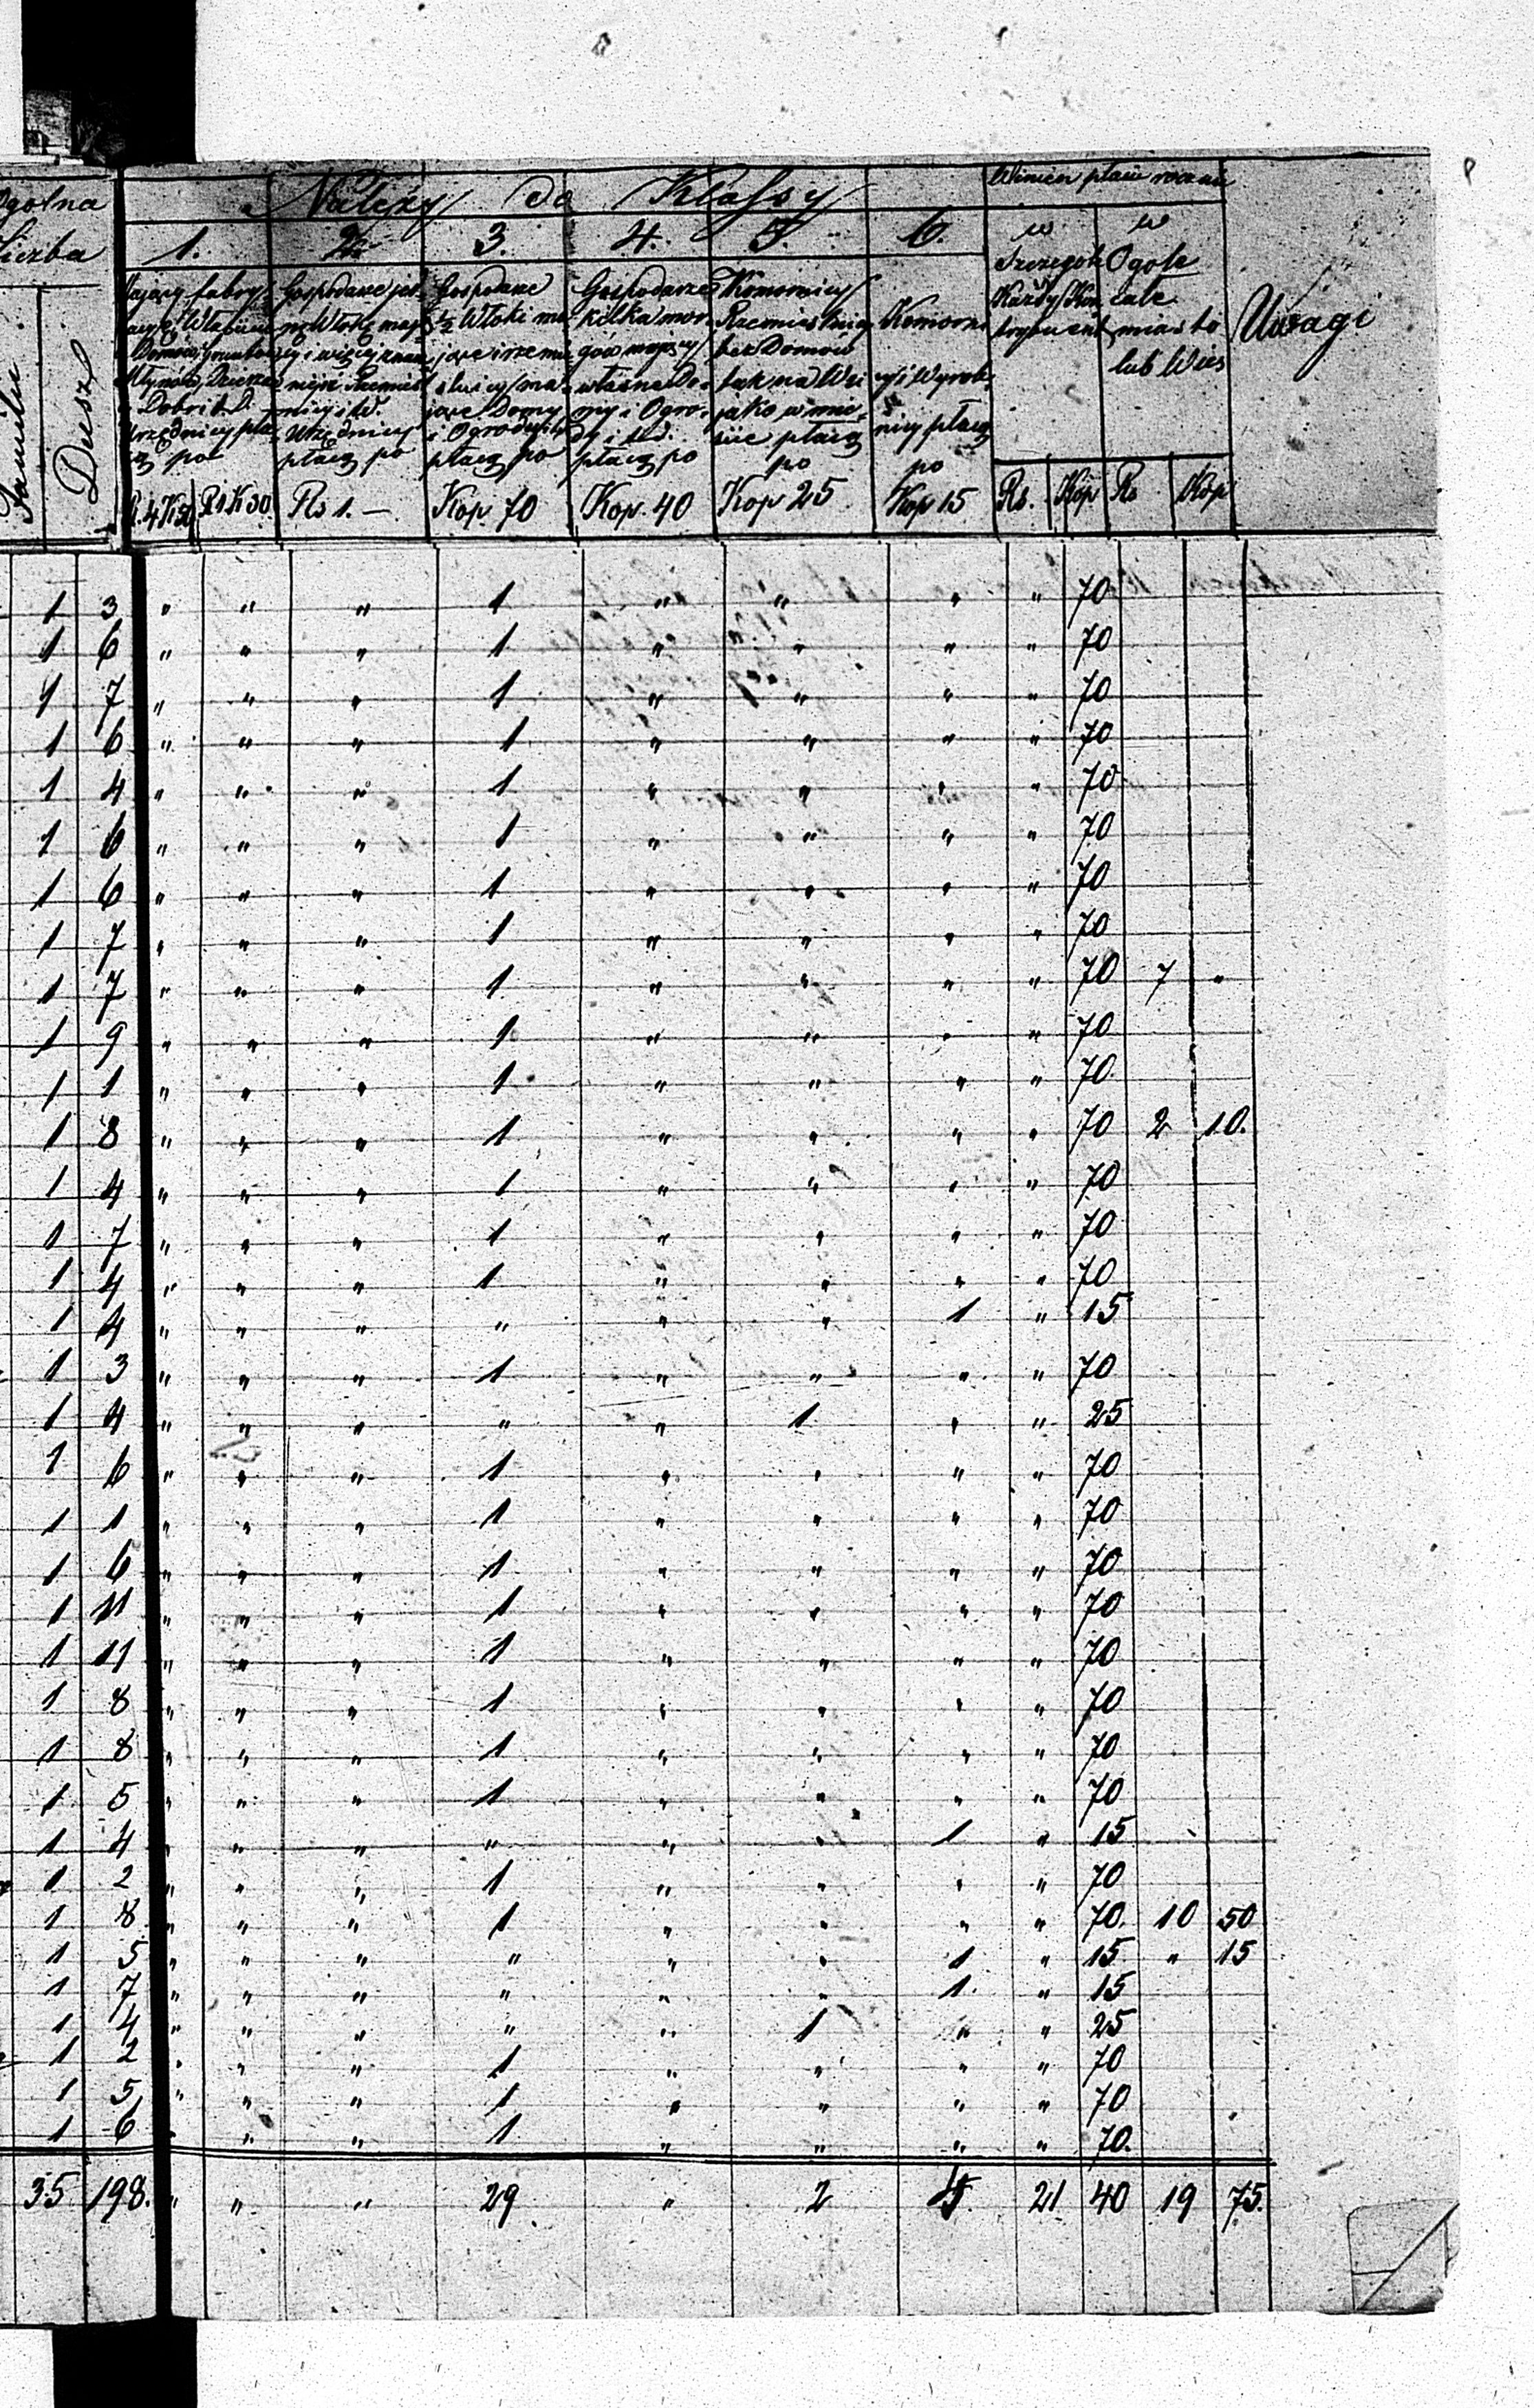 Ogólna
Liczba
Familii
Dusz
Należy do Klassy
Winien płacić rocznie
1. 2. 3. 4. 5. 6.
w Szczególe Każdy Kon
trybuent
w Ogóle
całe
miasto
lub Wieś
Uwagi
Gospodarze jed
Włokę mają
płacą po
Gospodarze
½ Włoki ma
jące Domy
płacą po
Gospodarze
kilka mor
gów mający
własne Do
my i Ogro
dy i t.d.
płacą po
Komornicy
bez Domów
tak na Wsi
jako w mie
ście płacą
po
Komorni
cy i Wyrob
nicy płacą
po
R. 4 K 50 Rs K 30 Rs 1. — Kop. 70 Kop. 40 Kop 25 Kop 15 Rs. Kop Rs Kop
1 3 " " " 1 " " " " 70
1 6 " " " 1 " " " " 70
1 7 " " " 1 " " " " 70
1 6 " " " 1 " " " " 70
1 4 " " " 1 " " " " 70
1 6 " " " 1 " " " " 70
1 6 " " " 1 " " " " 70
1 7 " " " 1 " " " " 70
1 7 " " " 1 " " " " 70 7 "
1 9 " " " 1 " " " " 70
1 1 " " " 1 " " " " 70
1 8 " " " 1 " " " " 70 2 10.
1 4 " " " 1 " " " " 70
1 7 " " " 1 " " " " 70
1 4 " " " 1 " " " " 70
1 4 " " " " " " 1 " 15
1 3 " " " 1 " " " " 70
1 4 " " " " " 1 " " 25
1 6 " " " 1 " " " " 70
1 1 " " " 1 " " " " 70
1 6 " " " 1 " " " " 70
1 11 " " " 1 " " " " 70
1 11 " " " 1 " " " " 70
1 8 " " " 1 " " " " 70
1 8 " " " 1 " " " " 70
1 5 " " " 1 " " " " 70
1 4 " " " " " " 1 " 15
1 2 " " " 1 " " " " 70
1 8 " " " 1 " " " " 70. 10 50
1 5 " " " " " " 1 " 15 " 15
1 7 " " " " " " 1. " 15
1 4 " " " " " 1 " " 25
1 2 " " " 1 " " " " 70
1 5 " " " 1 " " " " 70
1 6 " " " 1 " " " " 70.
35 198. " " " 29 " 2 4 21 40 19 75.